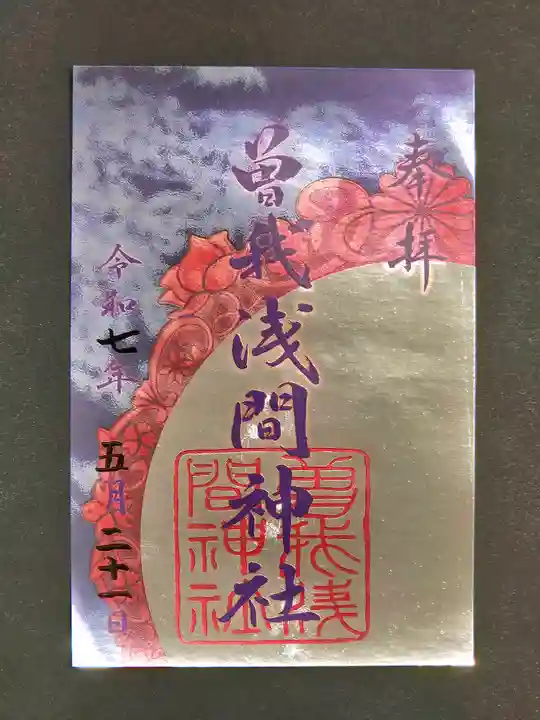 奉拝
曽我浅間神社
曽我浅
間神社
令和七年
五月二十一日